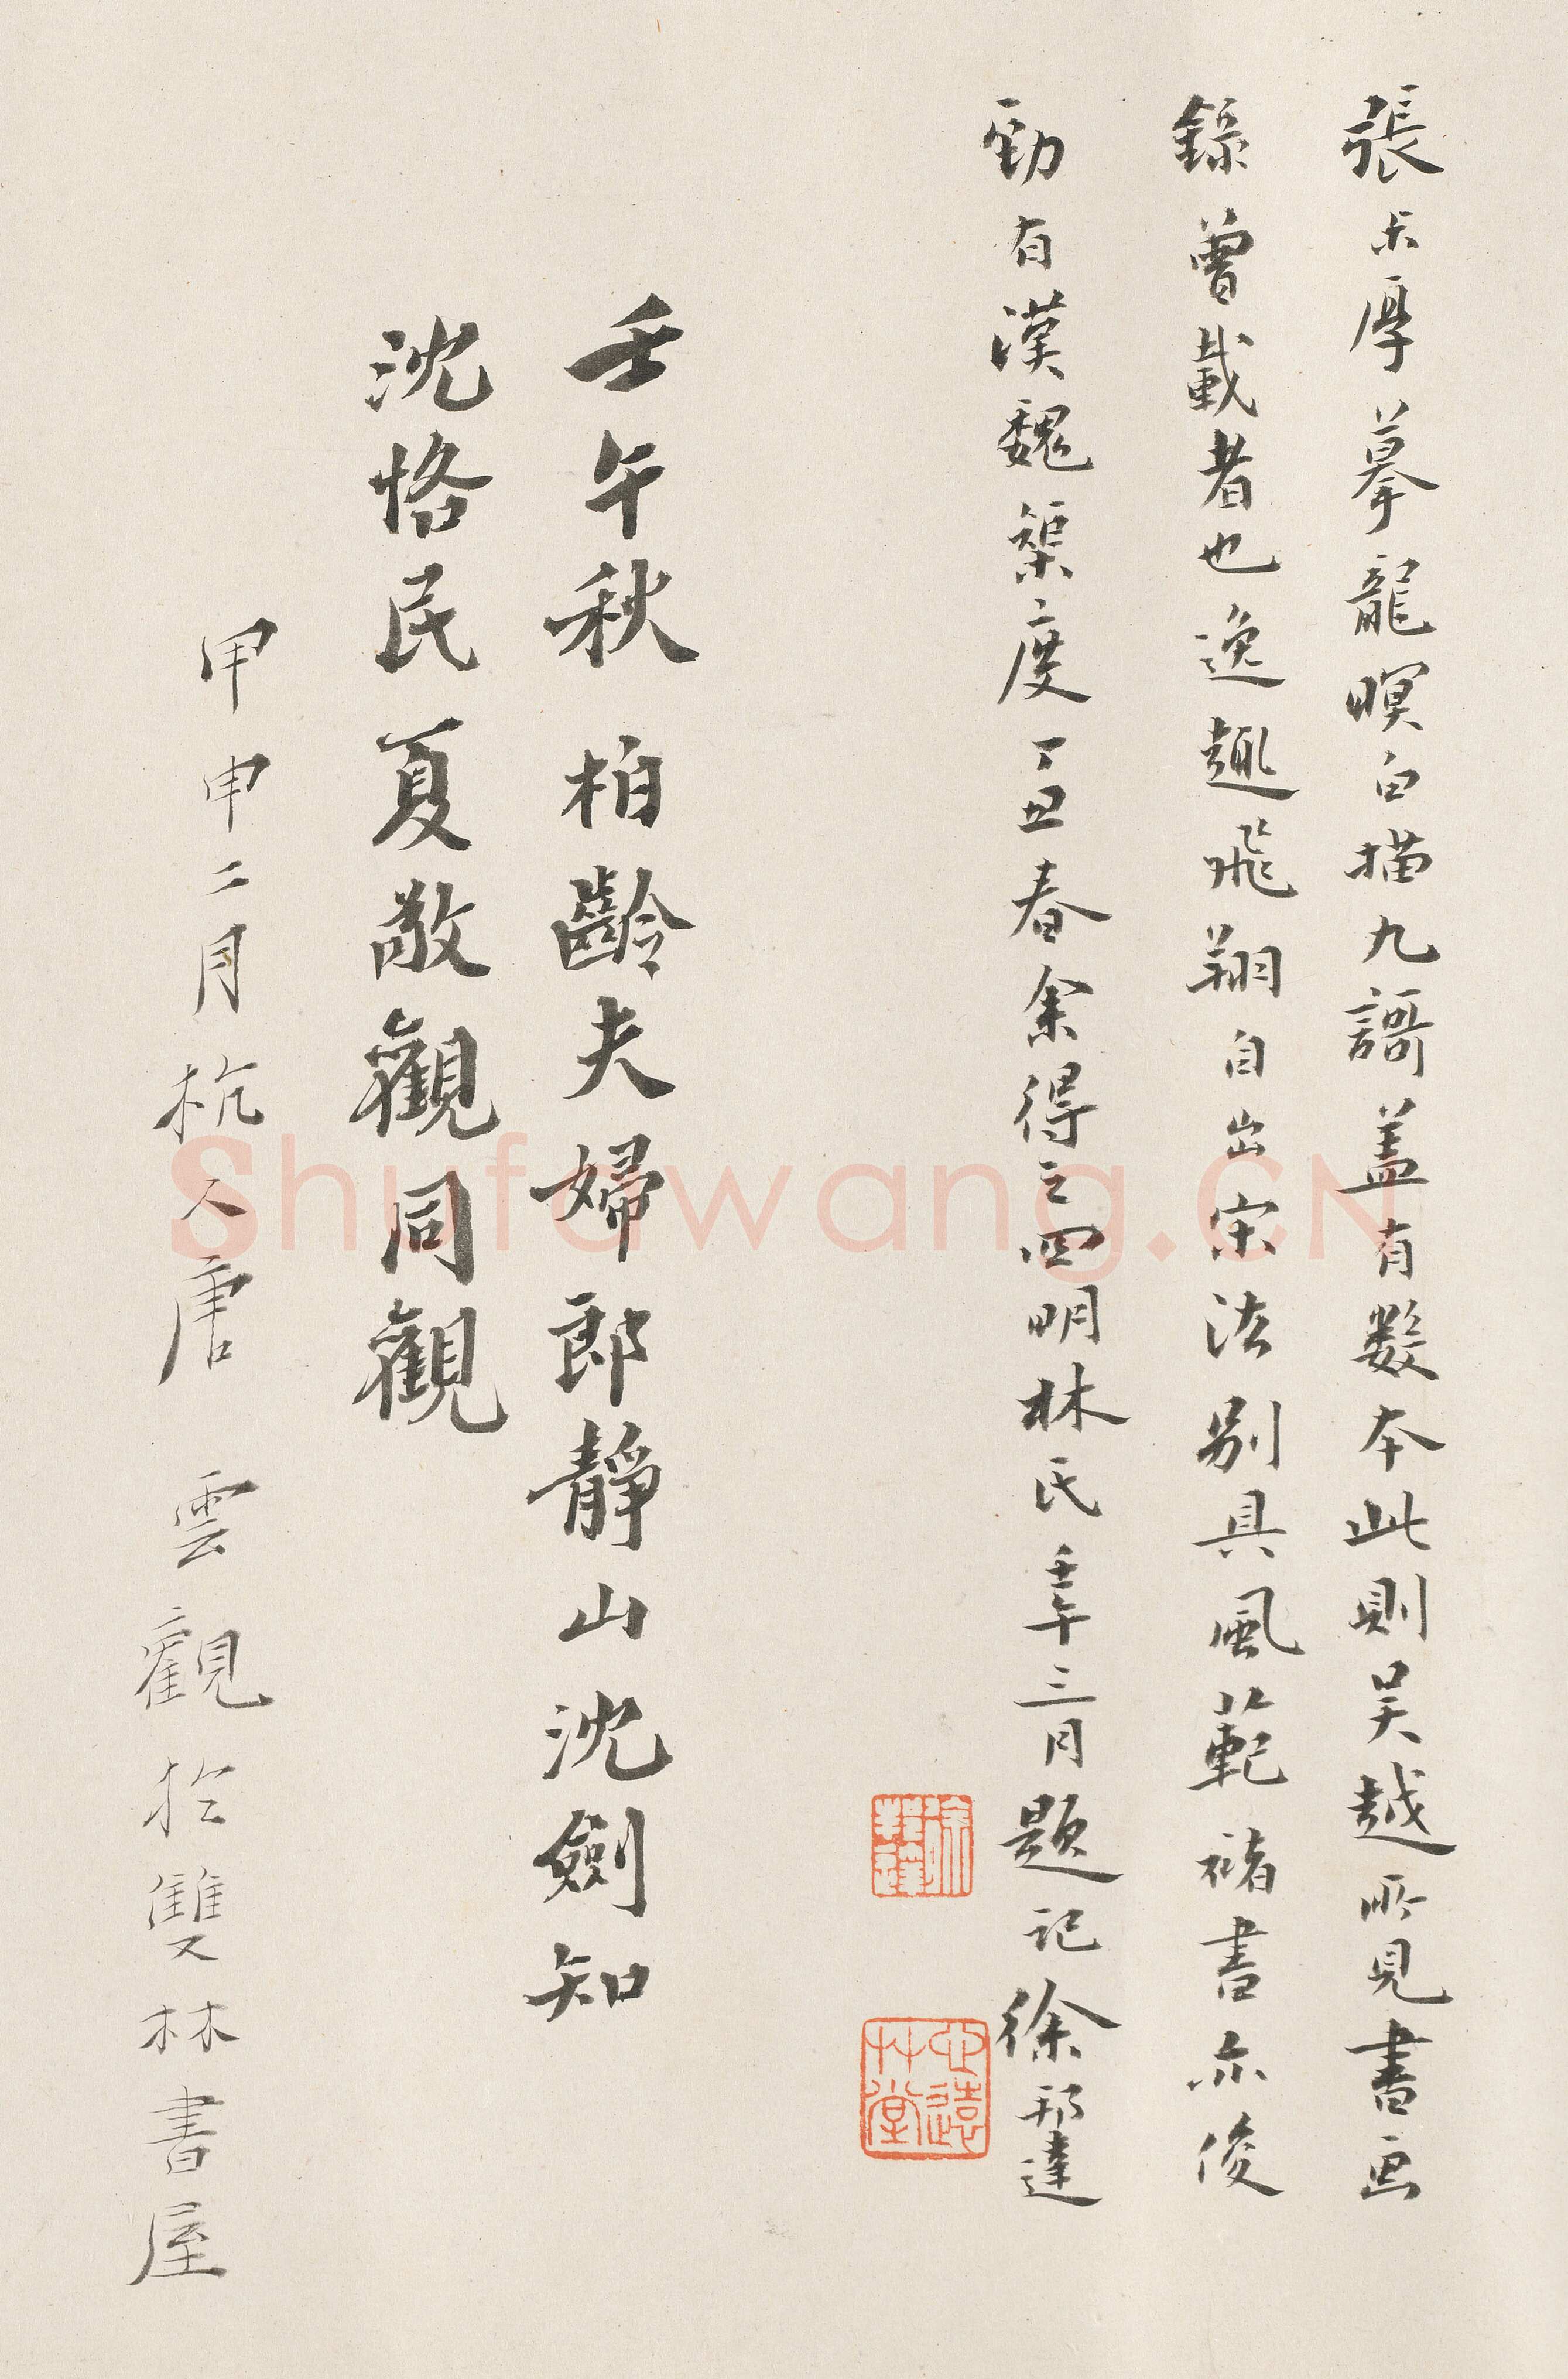 張尗厚摹龍暝白描九謌蓋有數本此則吴越所見書画
錄曾載者也逸趣飛翔自出宋法别具風範褚書亦俊
勁有漢魏榘度丁丑春余得之四明林氏壬午三月題記徐邦達
心遠艸堂
壬午秋柏齡夫婦郎靜山沈劍知
沈恪民夏敬觀同觀
甲申二月杭人唐雲觀於雙林書屋
Shufawang.CN